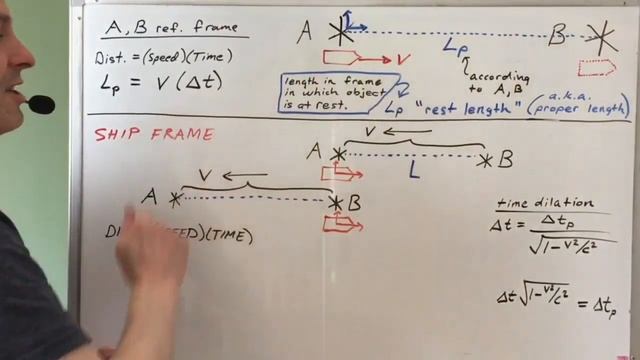 A, B ref. frame
Dist. = (Speed)(Time)
Lp = V (Δt)
A
B
Lp
V
according
to A, B
length in frame
in which object
is at rest.
Lp "rest length" (a.k.a. proper length)
SHIP FRAME
V
A
B
L
V
A
B
(TIME)
time dilation
Δt = Δtp / √1-V²/c²
Δt √1-V²/c² = Δtp